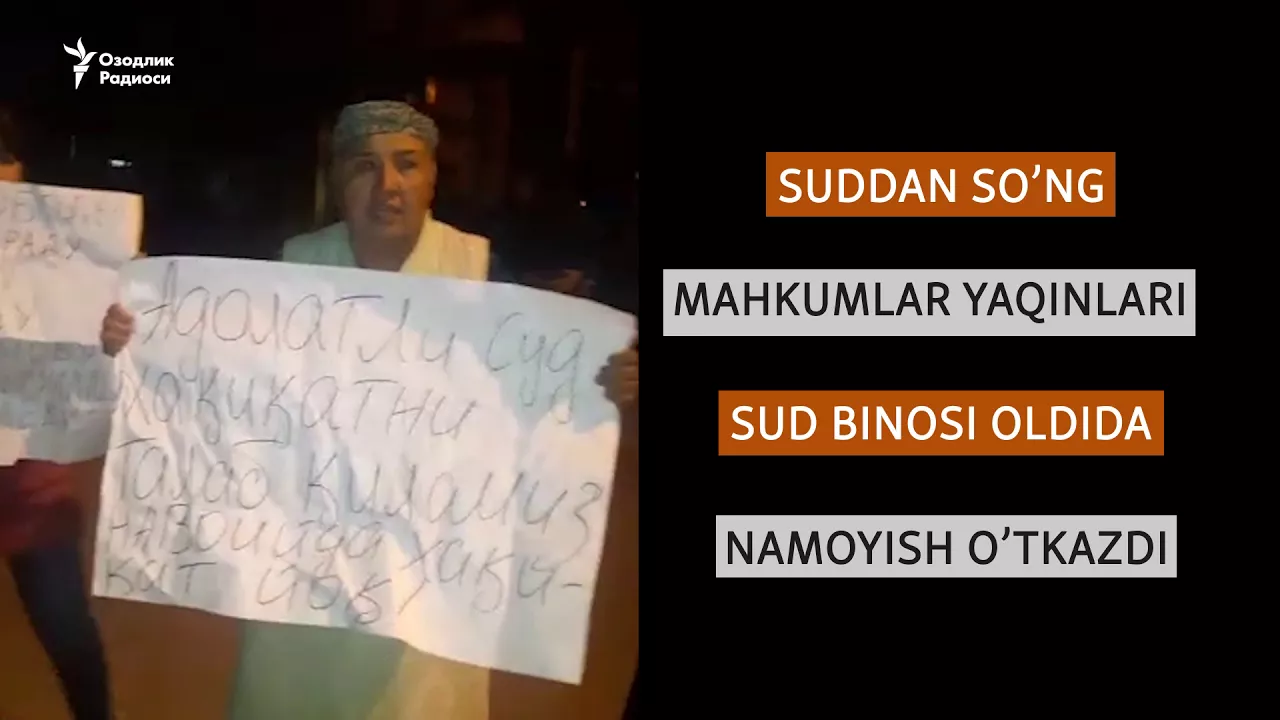 Озодлик
Радиоси
Адолатли суд
хақиқатни
Талаб қиламиз
Навоийда хақи-
қат йўқ
SUDDAN SO’NG
MAHKUMLAR YAQINLARI
SUD BINOSI OLDIDA
NAMOYISH O’TKAZDI